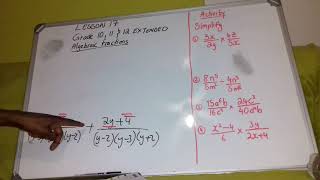 LESSON 17
Grade 10, 11 & 12 EXTENDED
Algebraic fractions
+ 2y + 4
(y-2)(y-3)(y+2)
Activity
Simplify
① 3x/2y × 4z/5x
② 8n²/5m³ ÷ 4n³/5m²
③ 15a²b/16c² × 24c³/40a³b
④ x²-4/6 × 3y/2x+4